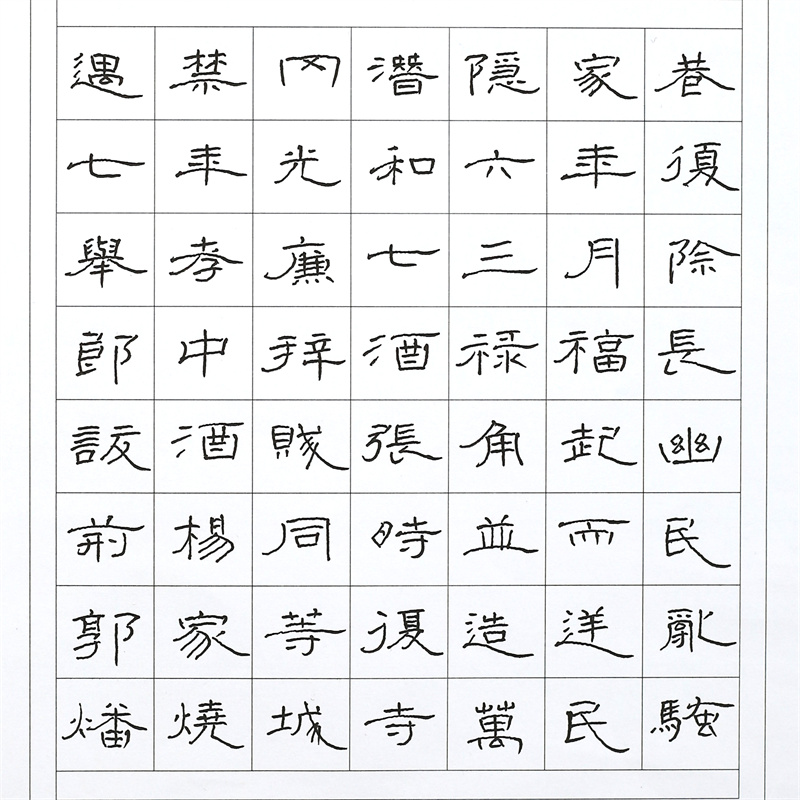 遇禁冈潛隱家巷
七年光和六年復
舉孝廉七三月除
郎中拜酒祿福長
訞酒賊張角起幽
荊楊同時並而民
郭家等復造逆亂
燔燒城寺萬民騷